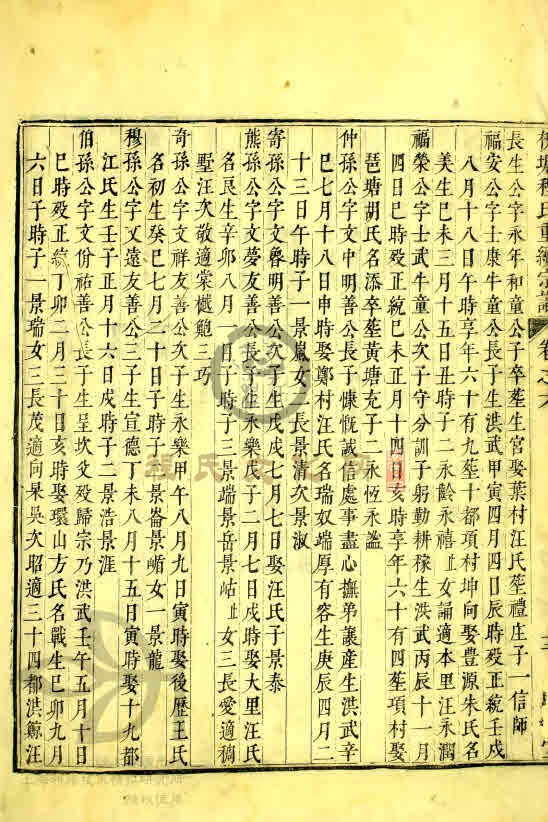 長生公字永年和童公子卒葬生宫娶葉村汪氏葬禮庄子一信師
福安公字士康牛童公長子生洪武甲寅四月四日辰時殁正統壬戌
八月十八日午時享年六十有九葬十都項村坤向娶豊源朱氏名
美生巳未三月十五日丑時子二永齡永禧止女誦適本里汪永潤
福榮公字士武牛童公次子守分訓子躬勤耕稼生洪武丙辰十一月
四日巳時殁正統巳未正月十四日亥時享年六十有四葬項村娶
琶塘胡氏名添卒葬黃塘充子二永恆永謐
仲孫公字文中明善公長子慷慨誠信處事盡心撫弟讓産生洪武辛
巳七月十八日申時娶鄭村汪氏名瑞奴端厚有容生庚辰四月二
十三日午時子一景嵐女一長景清次景淑
寄孫公字文馨明善公次子生戊戌七月七日娶汪氏子景泰
熊孫公字文夢友善公長子生永樂戊子二月七日戌時娶大里汪氏
名艮生辛卯八月一日子時子三景端景岳景岵止女三長愛適稠
墅汪次敬適棠樾鮑三巧
奇孫公字文祥友善公次子生永樂甲午八月九日寅時娶後歷王氏
名初生癸巳七月二十日子時子二景崙景峭女一景龍
穆孫公字文遠友善公三子生宣德丁未八月十五日寅時娶十九都
江氏生壬子正月十六日戌時子二景浩景涯
伯孫公字文份祐善公長子生呈坎父殁歸宗乃洪武壬午五月十日
巳時殁正統丁卯二月三十日亥時娶環山方氏名戰生巳卯九月
六日子時子一景瑞女三長茂適向杲吳次昭適三十四都洪鯨汪